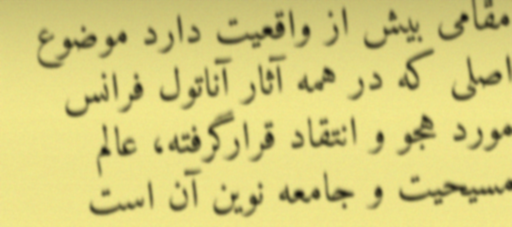 مقامی بیش از واقعیت دارد موضوع
اصلی که در همه آثار آناتول فرانس
مورد هجو و انتقاد قرارگرفته، عالم
مسیحیت و جامعه نوین آن است